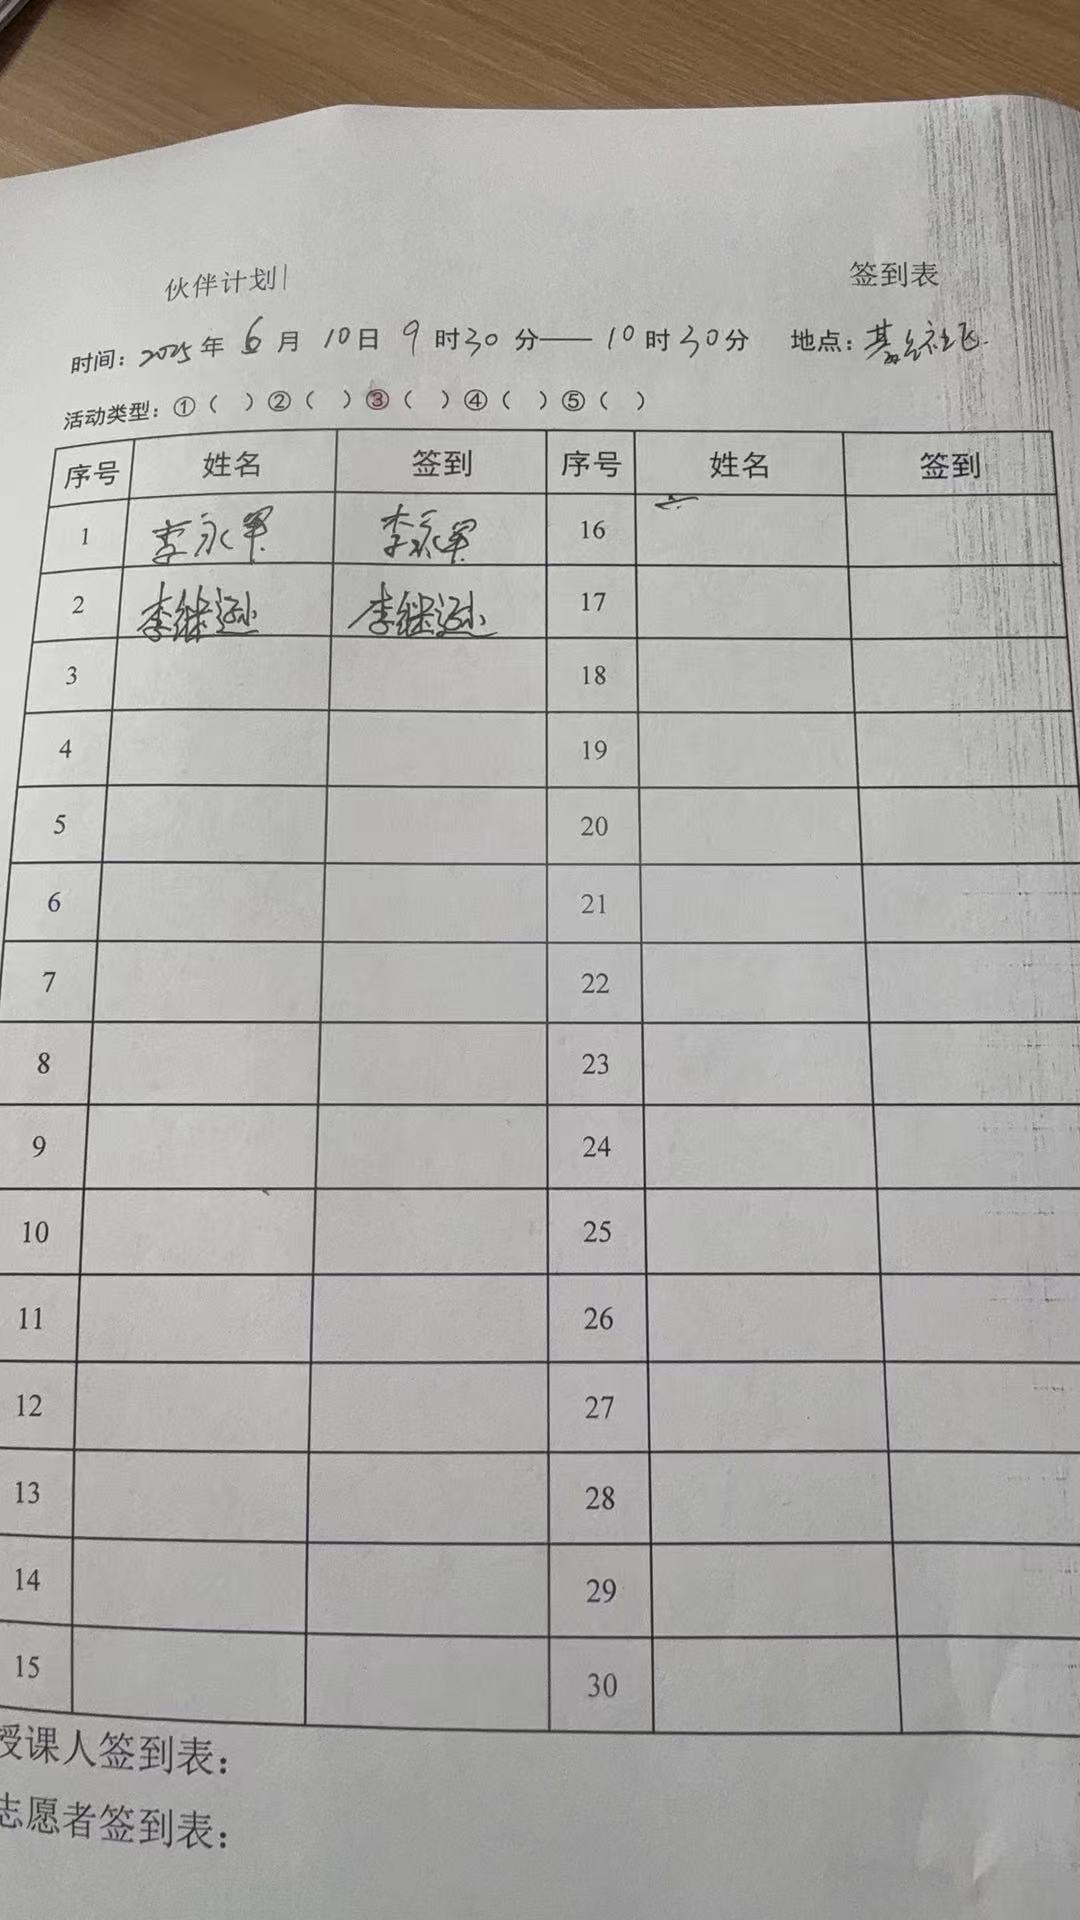 伙伴计划 签到表
时间：2025年 6月 10日 9时30分——10时30分 地点：
活动类型：①（ ）②（ ）③（ ）④（ ）⑤（ ）
序号 姓名 签到 序号 姓名 签到
1 李永军 李永军 16
2 李继逊 李继逊 17
3 18
4 19
5 20
6 21
7 22
8 23
9 24
10 25
11 26
12 27
13 28
14 29
15 30
授课人签到表：
志愿者签到表：